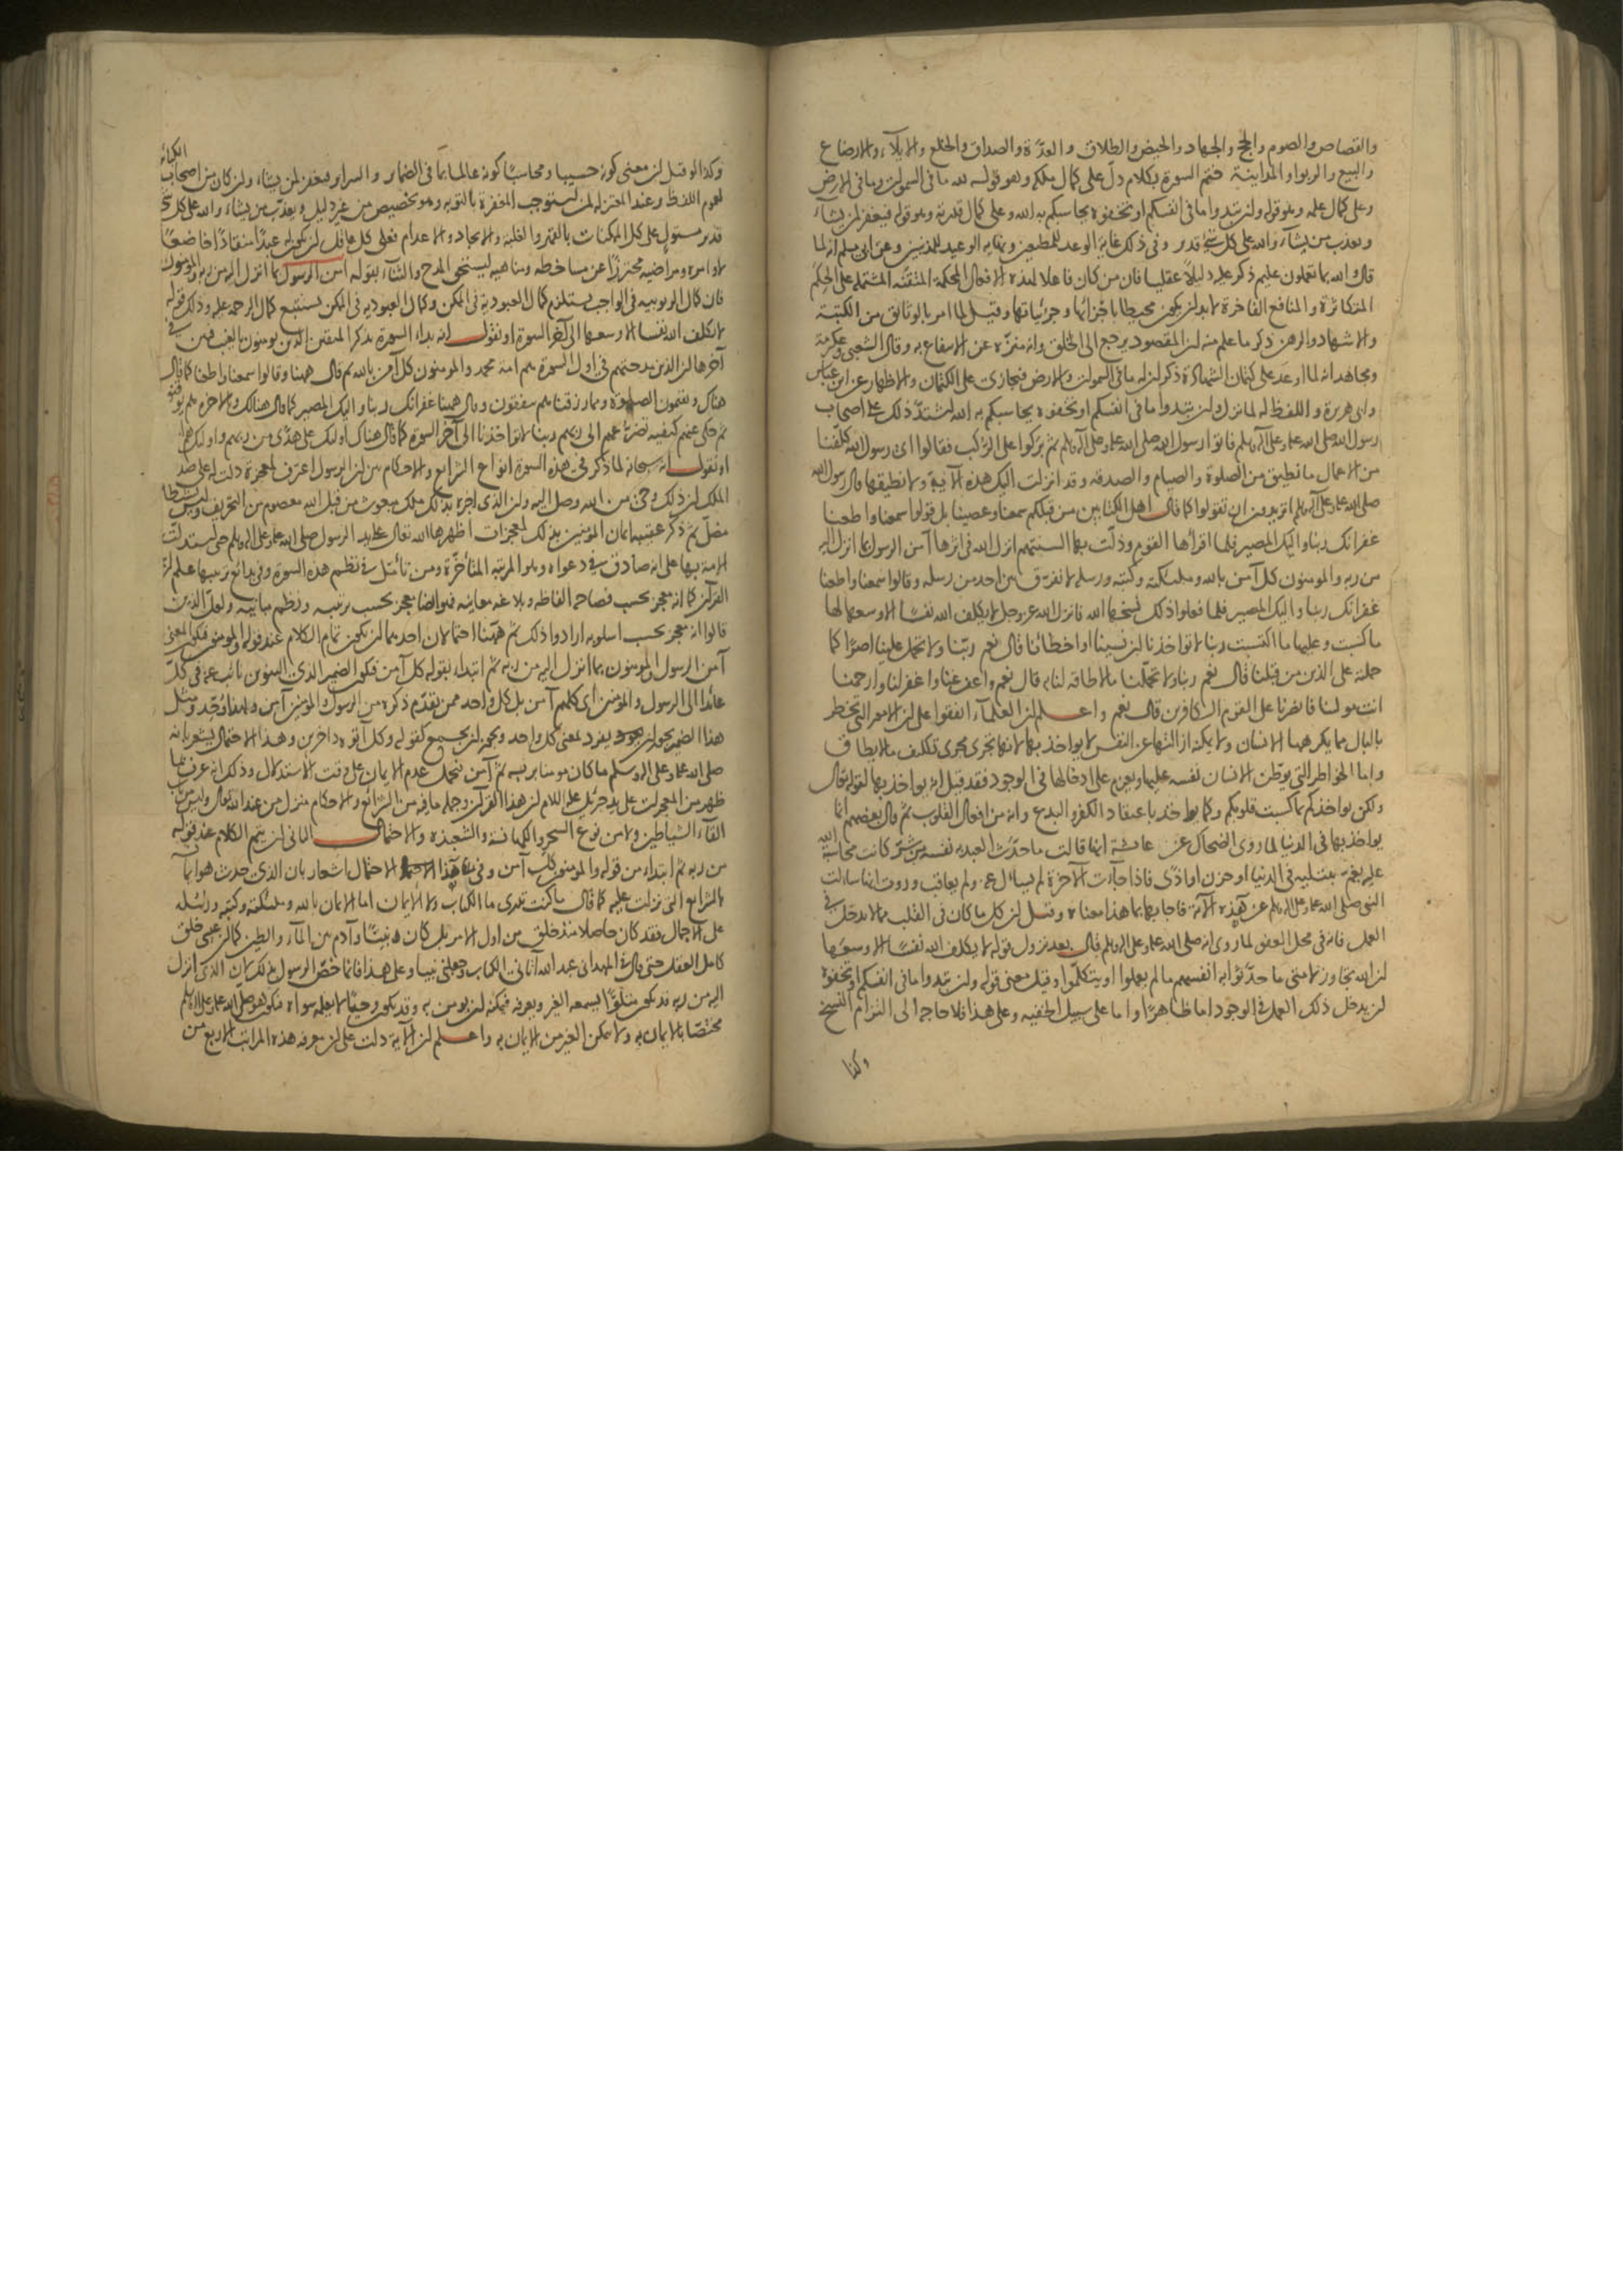 والقصاص والصوم والحج والجهاد والحيض والطلاق والعدّة والصداق والخلع والايلآء والارضاع
والبيع والربوا والمداينة ختم السورة بكلام دلّ على كمال ملكه وهو قوله لله ما فى السموات وما فى الارض
وعلى كمال علمه وهو قوله وان تبدوا ما فى انفسكم او تخفوه يحاسبكم به الله وعلى كمال قدرته وهو قوله فيغفر لمن يشآء
ويعذب من يشآء والله على كل شئ قدير وفى ذلك غاية الوعد للمطيعين ونهاية الوعيد للمذنبين وعن ابى مسلم انه لما
قال والله بما تعملون عليم ذكر عليه دليلا عقليا فان من كان فاعلا لهذه الافعال المحكمة المتقنة المشتملة على الحكم
المتكاثرة والمنافع الفاخرة لابد ان يكون محيطا باجزائها وجزئياتها وقيل لما امر بالوثائق من الكتبة
والاشهاد والرهن ذكر ما علم منه ان المقصود يرجع الى الخلق وانه منزّه عن الانتفاع به وقال الشعبى وعكرمة
ومجاهد انه لما اوعد على كتمان الشهادة ذكر ان له ما فى السموات والارض فيجازى على الكتمان والاظهار عن ابن عباس
وابى هريرة واللفظ له لما نزل وان تبدوا ما فى انفسكم او تخفوه يحاسبكم به الله اشتدّ ذلك على اصحاب
رسول الله صلى الله عليه وعلى آله وسلم فاتوا رسول الله صلى الله عليه وعلى آله وسلم ثم بركوا على الركب فقالوا اى رسول الله كلّفنا
من الاعمال ما نطيق من الصلوة والصيام والصدقة وقد انزلت اليك هذه الآية ولا نطيقها قال رسول الله
صلى الله عليه وعلى آله وسلم اتريدون ان تقولوا كما قال اهل الكتابين من قبلكم سمعنا وعصينا بل قولوا سمعنا واطعنا
غفرانك ربنا واليك المصير فلما اقرأها القوم وذلّت بها السنتهم انزل الله فى اثرها آمن الرسول بما انزل اليه
من ربه والمومنون كل آمن بالله وملئكته وكتبه ورسله لا نفرق بين احد من رسله وقالوا سمعنا واطعنا
غفرانك ربنا واليك المصير فلما فعلوا ذلك نسخها الله فانزل الله عز وجل لا يكلف الله نفسًا الا وسعها لها
ما كسبت وعليها ما اكتسبت ربنا لا تواخذنا ان نسينا او اخطأنا قال نعم ربّنا ولا تحمل علينا اصرًا كما
حملته على الذين من قبلنا قال نعم ربنا ولا تحمّلنا ما لا طاقة لنا به قال نعم واعف عنا واغفر لنا وارحمنا
انت مولينا فانصرنا على القوم الكافرين قال نعم واعلم ان العلمآء اتفقوا على ان الامور التى تخطر
بالبال مما يكرهها الانسان ولا يمكنه ازالتها عن النفس لا يواخذ بها لانها تجرى مجرى تكليف ما لا يطاق
واما الخواطر التى يوطّن الانسان نفسه عليها ويعزم على ادخالها فى الوجود فقد قيل انه يواخذ بها لقوله تعالى
ولكن يواخذكم بما كسبت قلوبكم وكما يواخذ باعتقاد الكفر والبدع وانه من افعال القلوب ثم قال بعضهم انما
يواخذ بها فى الدنيا لما روى الضحاك عن عائشة انها قالت ما حدّث العبد به نفسه من شرّ كانت محاسبة الله
عليه بغمّ يبتليه فى الدنيا او حزن او اذى فاذا جاءت الآخرة لم يسأل عنه ولم يعاقب وروت انها سالت
النبى صلى الله عليه وعلى آله وسلم عن هذه الآية فاجابها بما هذا معناه وقيل ان كل ما كان فى القلب مما لا يدخل فى
العمل فانه فى محل العفو لما روى انه صلى الله عليه وعلى آله وسلم قال بعد نزول قوله لا يكلف الله نفسًا الا وسعها
ان الله تجاوز لامتى ما حدّثوا به انفسهم ما لم يعملوا او يتكلّموا وقيل معنى قوله وان تبدوا ما فى انفسكم او تخفوه
ان يدخل ذلك العمل فى الوجود اما ظاهرًا واما على سبيل الخفيه وعلى هذا فلا حاجه الى التزام النسخ
وكذا
وكذا لو قيل ان معنى كونه حسيبا ومحاسبًا كونه عالما بما فى الضماير والسراير فيغفر لمن يشاء وان كان من اصحاب الكبائر
لعموم اللفظ وعند المعتزله لمن استوجب المغفرة بالتوبه وهو تخصيص من غير دليل ويعذّب من يشاء والله على كل شئ
قدير مستول على كل الممكنات بالقهر والغلبة والايجاد والاعدام فعلى كل عاقل ان يكون له عبدًا منقادًا خاضعًا
لاوامره ومراضيه محترزًا عن مساخطه ومناهيه ليستحق المدح والثناء بقوله آمن الرسول بما انزل اليه من ربه والمومنون
فان كمال الربوبية فى الواجب يستلزم كمال العبودية فى الممكن وكمال العبودية فى الممكن يستتبع كمال الرحمة عليه وذلك قوله
لا يكلف الله نفسا الا وسعها الى آخر السورة او نقول انه بداء السورة بذكر المتقين الذين يومنون بالغيب فبين فى
آخرها ان الذين مدحتهم فى اول السورة هم امة محمد والمومنون كل آمن بالله ثم قال ههنا وقالوا سمعنا واطعنا كما قال
هناك ويقيمون الصلوة ومما رزقناهم ينفقون وقال ههنا غفرانك ربنا واليك المصير كما قال هنالك وبالاخرة هم يوقنون
ثم حكى عنهم كيفية تضرعهم الى ربهم ربنا لا تواخذنا الى آخر السورة كما قال هناك اولئك على هدًى من ربهم واولئك هم
او نقول انه سبحانه لما ذكر فى هذه السورة انواع الشرايع والاحكام بين ان الرسول اعترف لمعجزة دلت له على صدق
الملك ان ذلك وحى من الله وصل اليه وان الذى اخبره بذلك ملك مبعوث من قبل الله معصوم من التحريف وليس بشيطان
مضلّ ثم ذكر عقيبه ايمان المومنين بذلك لمعجزات اظهرها الله تعالى على يد الرسول صلى الله عليه وعلى آله وسلم حتى استدلت
الامة بها على انه صادق فى دعواه وهو المرتبة المتأخرة ومن تأمل فى نظم هذه السورة وفى بدائع ترتيبها علم ان
القرآن كما انه معجز بحسب فصاحة الفاظه وبلاغة معانيه فهو ايضا معجز بحسب ترتيبه ونظم مبانيه ولعل الذين
قالوا انه معجز بحسب اسلوبه ارادوا ذلك ثم ههنا احتمالان احدهما ان يكون تمام الكلام عند قوله والمومنون فيكون المعنى
آمن الرسول والمومنون بما انزل اليه من ربه ثم ابتداء بقوله كل آمن فيكون الضمير الذى التنوين نائب عنه فى كل
عائدا الى الرسول والمؤمنين اى كلهم آمن بل كل واحد ممن تقدّم ذكره من الرسول والمومنين آمن ولهذا وحّد ومثل
هذا الضمير يجوز ان يفرد بمعنى كل واحد ويجوز ان يجمع كقوله وكل آتوه داخرين وهذا الاحتمال يشعر بانه
صلى الله عليه وعلى آله وسلم ما كان مومنا بربه ثم آمن فيحمل عدم الايمان على وقت الاستدلال وذلك انه عرف بما
ظهر من المعجزات على يد جبرئيل عليه السلام ان هذا القرآن وجملة ما فيه من الشرائع والاحكام منزل من عند الله تعالى وليس من باب
القآء الشياطين ولا من نوع السحر والكهانة والشعبذة والاحتمال الثانى ان يتم الكلام عند قوله
من ربه ثم ابتداء من قوله والمومنون كل آمن وفى هذا الاحتمال اشعار بان الذى حدث هو ايمانه
بالشرايع التى نزلت عليه كما قال ما كنت تدرى ما الكتاب ولا الايمان اما الايمان بالله وملئكته وكتبه ورسله
على الاجمال فقد كان حاصلا منذ خلق من اول الامر بل كان نبيًّا وآدم بين المآء والطين كما ان عيسى خلق
كامل العقل حتى قال فى المهد انى عبد الله آتانى الكتاب وجعلنى نبيا وعلى هذا فانما خصّ الرسول بذلك لان الذى انزل
اليه من ربه قد يكون متلوًّا يسمعه الغير ويعرفه فيمكنه ان يومن به وقد يكون وحيًا لا يعلمه سواه فيكون هو صلى الله عليه وعلى آله وسلم
مختصّا بالايمان به ولا يمكن الغير من الايمان به واعلم ان الآية دلت على ان معرفة هذه المراتب الاربع من